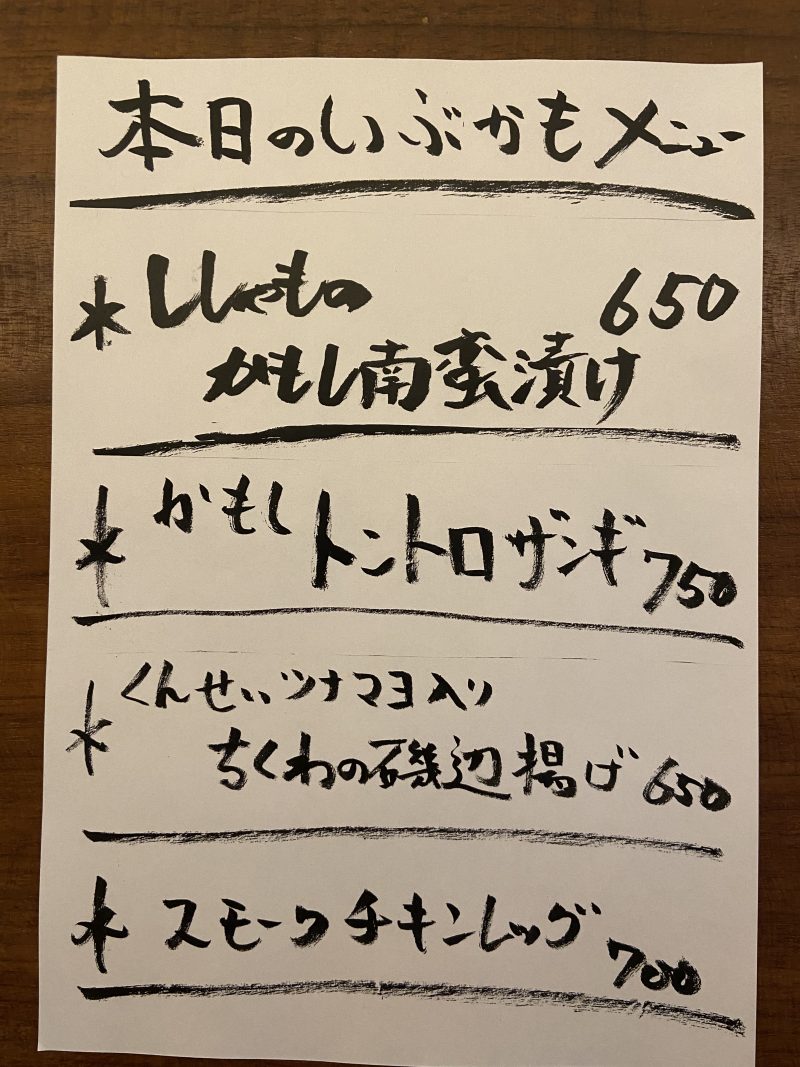 本日のいぶかもメニュー
* ししゃもの 650
かもし南蛮漬け
* かもしトントロザンギ 750
* くんせいツナマヨ入り
ちくわの磯辺揚げ 650
* スモークチキンレッグ 700